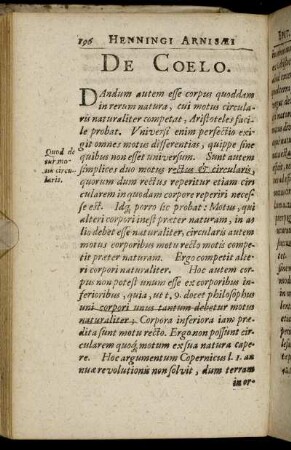 196 HENNINGI ARNISÆI
DE COELO.
DAndum autem esse corpus quoddam
in rerum natura, cui motus circula-
ris naturaliter competat, Aristoteles faci-
le probat. Vniversi enim perfectio exi-
git omnes motus differentias, quippe sine
quibus non esset universum. Sunt autem
simplices duo motus rectus & circularis,
quorum dum rectus reperitur etiam cir-
cularem in quodam corpore reperiri neces-
se est. Idq; porro sic probat: Motus, qui
alteri corpori inest præter naturam, in a-
lio debet esse naturaliter, circularis autem
motus corporibus motu recto motis compe-
tit præter naturam. Ergo competit alte-
ri corpori naturaliter. Hoc autem cor-
pus non potest unum esse ex corporibus in-
ferioribus, quia, ut t, 9. docet philosophus
uni corpori unus tantum debetur motus
naturaliter; Corpora inferiora iam præ-
dita sunt motu recto. Ergo non possunt cir-
cularem quoq; motum ex sua natura cape-
re. Hoc argumentum Copernicus l. 1. an-
nuæ revolutionis non solvit, dum terram
in or-
Quod de-
tur mo-
tus circu-
laris.